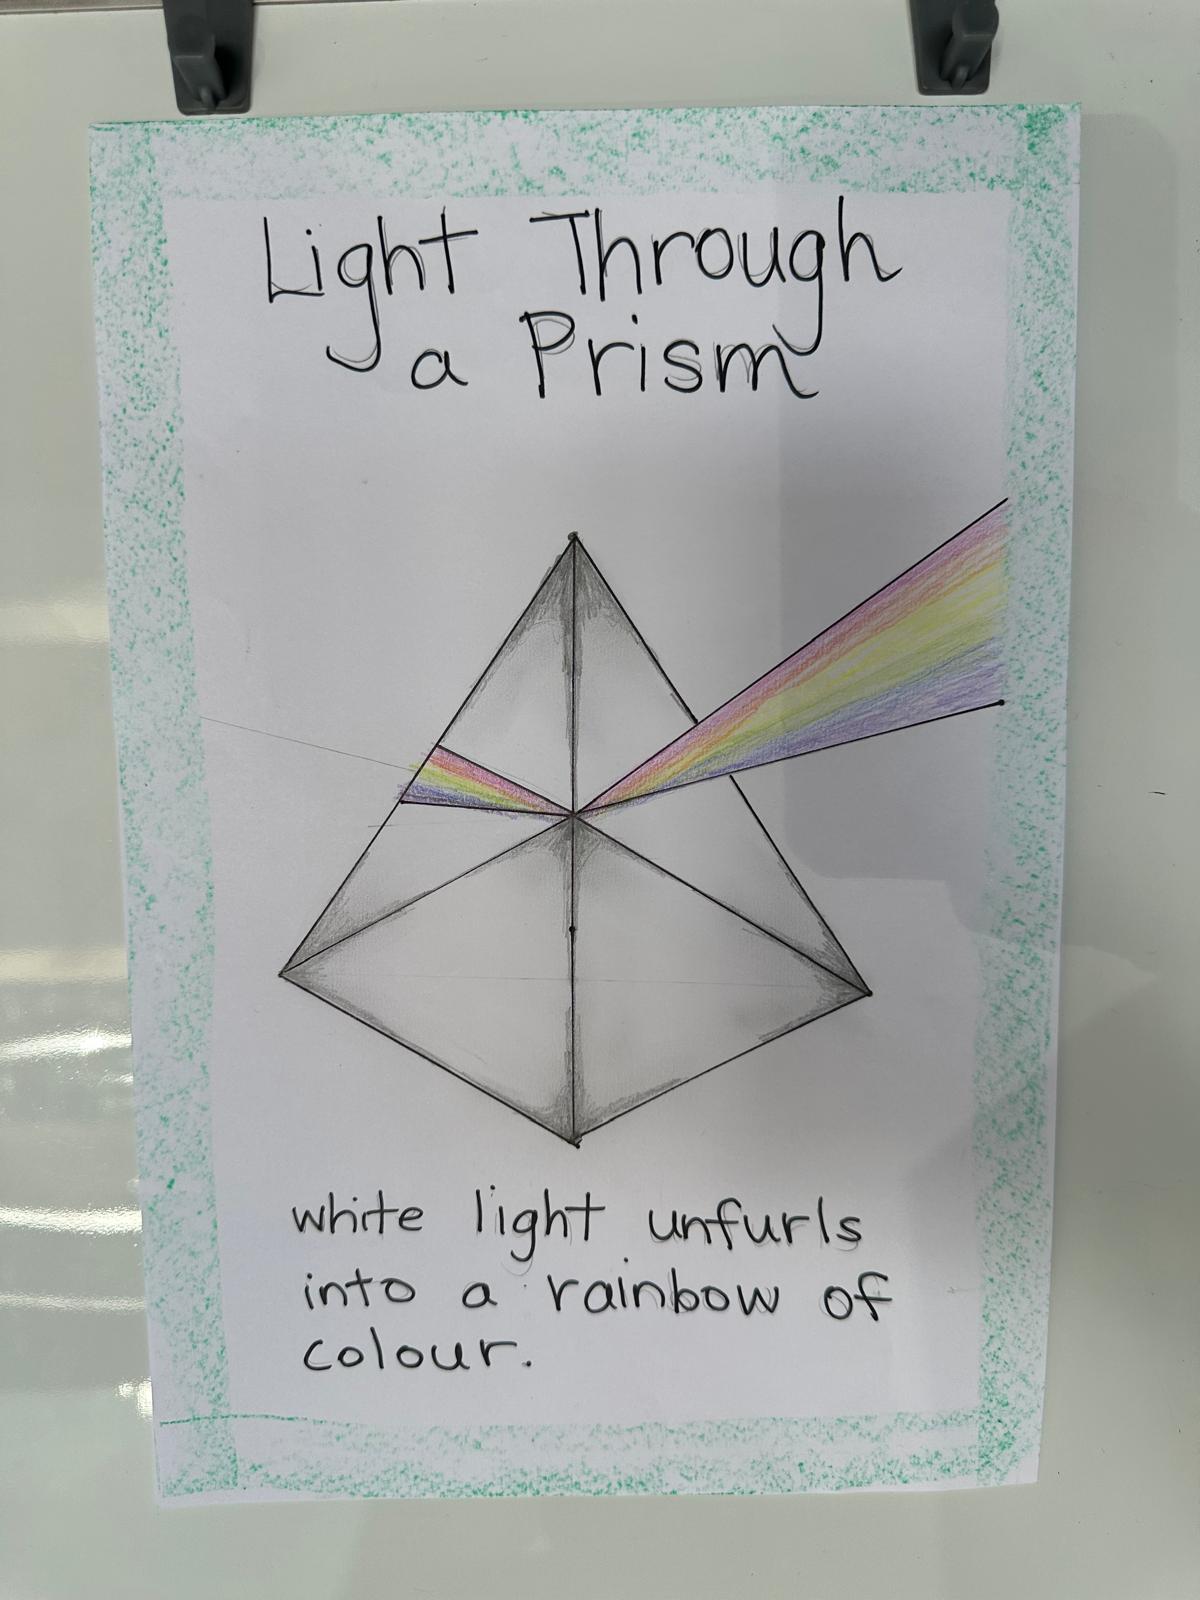 Light Through
a Prism
white light unfurls
into a rainbow of
colour.